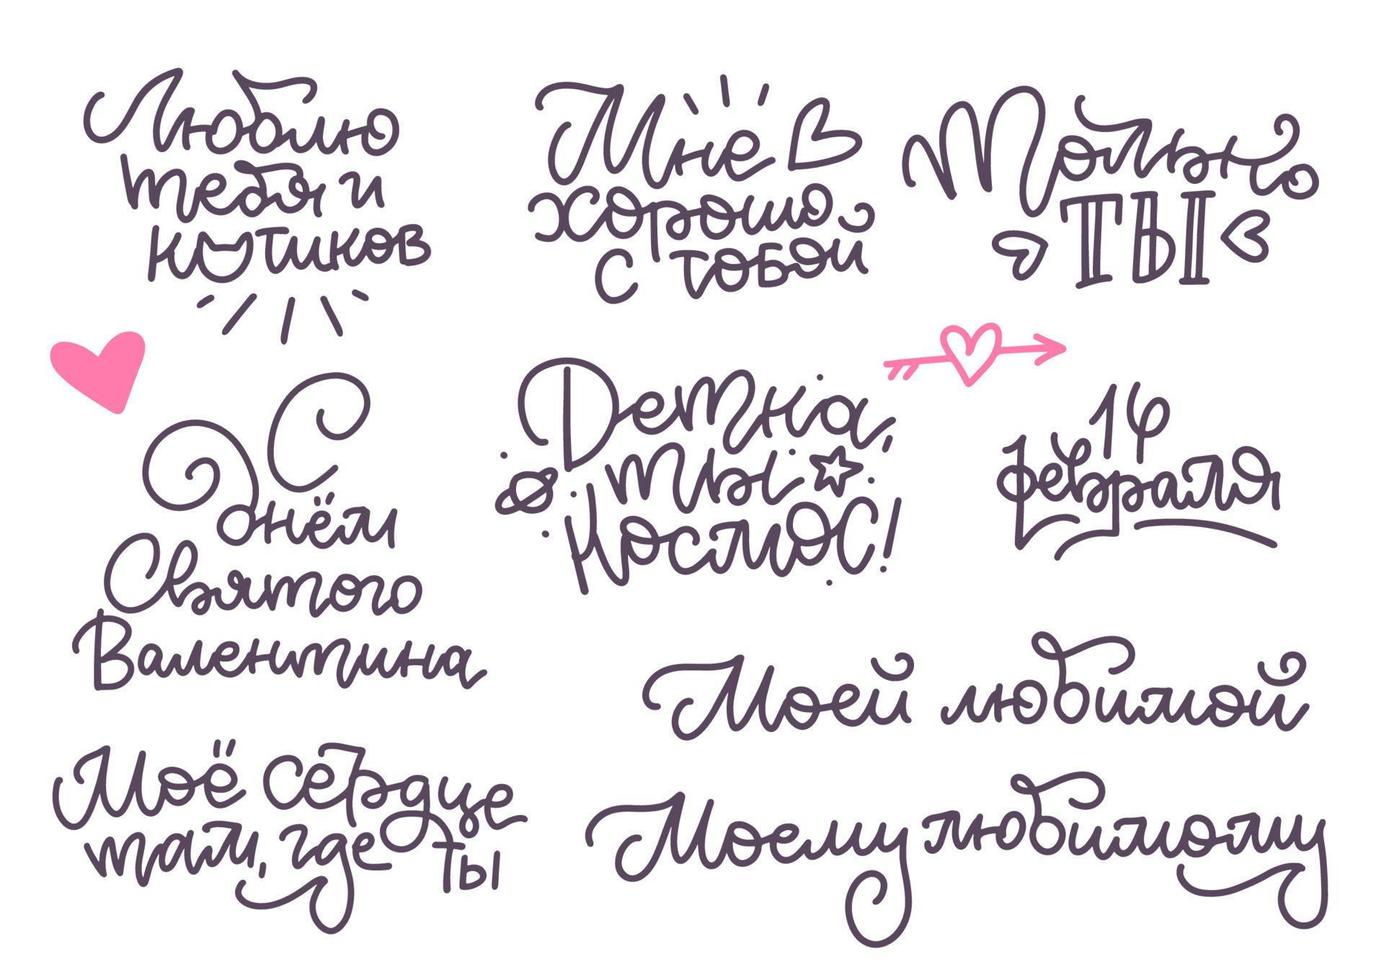 Люблю
тебя и
котиков
Мне
хорошо
с тобой
Только
ТЫ
С
днём
Святого
Валентина
Детка,
ты
Космос!
14
февраля
Моей любимой
Моё сердце
там, где ты
Моему любимому